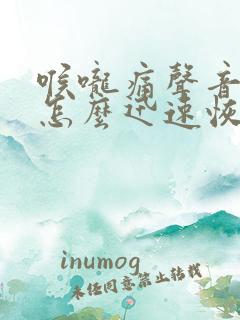 喉嚨痛聲音
怎麼迅速恢
inumog
未经同意禁止转载